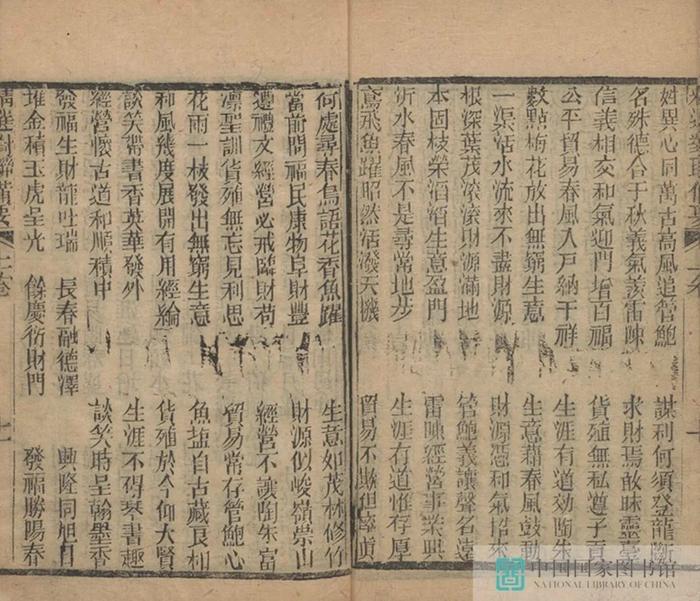 姓異心同萬古高風追管鮑　謀利何須登龍斷
名殊德合千秋義氣羨雷陳　求財焉敢昧靈臺
信義相交和氣迎門增百福　貨殖無私遵子貢
公平貿易春風入戸納千祥　生涯有道效陶朱
數點梅花放出無窮生意　生意藉春風鼓動
一渠活水流來不盡財源　財源憑和氣招來
根深葉茂滾滾財源滿地　管鮑義讓聲名遠
本固枝榮滔滔生意盈門　雷陳經營事業興
沂水春風不是尋常地步　生涯有道惟存厚
鳶飛魚躍昭然活潑天機　貿易不欺但率眞
何處尋春鳥語花香魚躍　生意如茂林修竹
當前問福民康物阜財豐　財源似峻嶺崇山
遵禮文經營必戒臨財苟　經營不讓陶朱富
凛聖訓貨殖無忘見利思　貿易常存管鮑心
花雨一枝發出無窮生意　魚鹽自古藏良相
和風幾度展開有用經綸　貨殖於今仰大賢
談笑常書香英華發外　生涯不得琴書趣
經營懷古道和順積中　談笑時呈翰墨香
發福生財龍吐瑞　長春融德澤　興隆同旭日
堆金積玉虎呈光　餘慶衍財門　發福勝陽春
精選對聯備要
中国国家图书馆
NATIONAL LIBRARY OF CHINA